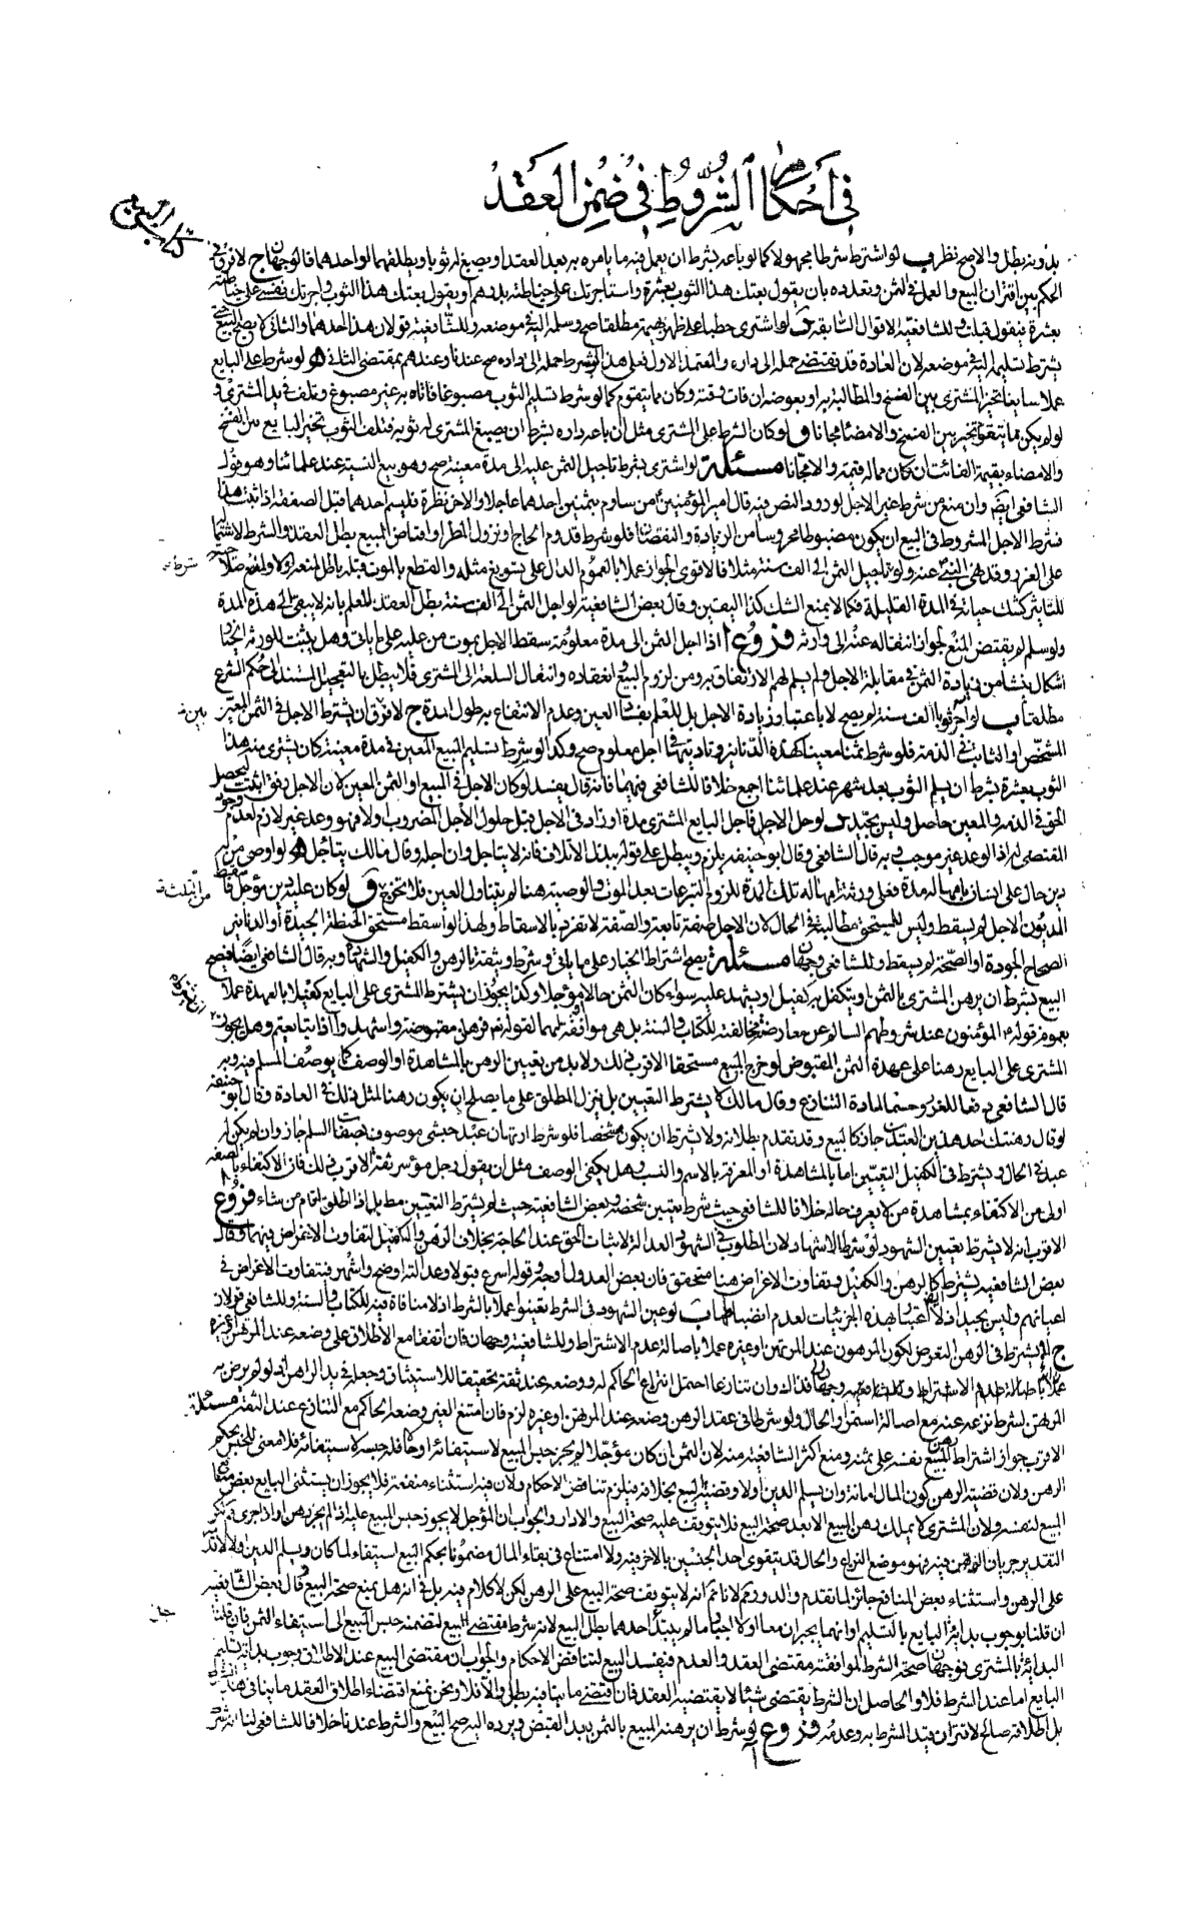 في أحكام الشروط في ضمن العقد
كتاب البيع
بدونه بطل والا صح نظر ب لو اشترط شرطا مجهولا كما لو باعه بشرط ان يعمل فيه ما يامره به بعد العقد او يصبغ له ثوبا ويطلقهما او احدهما فالوجهان ج لا فرق في
الحكم بين اقتران البيع والعمل في الثمن وتعدده بان يقول بعتك هذا الثوب بعشرة واستاجرتك على خياطته بدرهم او يقول بعتك هذا الثوب واجرتك نفسي على خياطته
بعشرة فيقول قبلت وللشافعية الاقوال السابقة لو اشترى حطبا على ظهر بهيمة مطلقا صح وسلمه اليه في موضعه وللشافعية قولان هذا احدهما والثاني لا يصح البيع حتى
يشترط تسليمه اليه في موضعه لان العادة قد تقتضي حمله الى داره والمعتمد الاول فعلى هذا لو شرط حمله الى داره صح عندنا وعندهم بمقتضى الثاني لو شرط على البايع
عملا سايغا تخير المشتري بين الفسخ والمطالبة به او بعوضه ان فات وقته وكان مما يتقوم كما لو شرط تسليم الثوب مصبوغا فاتاه به غير مصبوغ وتلف في يد المشتري و
لو لم يكن مما يتقوم تخير بين الفسخ والامضاء مجانا و لو كان الشرط على المشتري مثل ان باعه داره بشرط ان يصبغ المشتري له ثوبه فتلف الثوب تخير البايع بين الفسخ
والامضاء بقيمة الفائت ان كان مما له قيمة والا مجانا مسئلة لو اشترى بشرط تاجيل الثمن عليه الى مدة معينة صح وهو بيع النسية عند علمائنا وهو قول
الشافعي ايضا وان منع من شرط غير الاجل لورود النص فيه قال امير المؤمنين من ساوم بثمنين احدهما عاجلا والاخر نظرة فليسم احدهما قبل الصفقة اذا ثبت هذا
فشرط الاجل المشروط في البيع ان يكون مضبوطا محروسا من الزيادة والنقصان فلو شرط قدوم الحاج او نزول المطر او انقاض المبيع بطل العقد والشرط لاشتماله
على الغرر وقد نهى النبي عنه ولو تاجيل الثمن الى الف سنة مثلا فالاقوى الجواز عملا بالعموم الدال على تسويغ مثله والقطع بالموت قبله
للتاثير كشك حياته في المدة القليلة فكما لا يمنع الشك كذا اليقين وقال بعض الشافعية لو اجل الثمن الى الف سنة بطل العقد للعلم بانه لا يبقى الى هذه المدة
ولو سلم لم يقتض المنع لجواز انتقاله عنه الى وارثه فروع ا اذا اجل الثمن الى مدة معلومة سقط الاجل بموت من عليه على ما ياتي وهل يثبت للورثة الخيار
اشكال ينشا من زيادة الثمن في مقابلة الاجل ولم يسلم لهم الارتفاق به ومن لزوم البيع وانعقاده وانتقال السلعة الى المشتري فلا يبطل بالتعجيل المستند الى حكم الشرع
مطلقا ب لو آجر ثوبا الف سنة لم يصح لا باعتبار زيادة الاجل بل للعلم بفساد العين وعدم الانتفاع به طول المدة ج لا فرق ان يشترط الاجل في الثمن المعين
المشخص او الثابت في الذمة فلو شرط ثمنا معينا كهذه الدنانير وتاديتها في اجل معلوم صح وكذا لو شرط تسليم المبيع المعين في مدة معينة كان يشتري منه هذا
الثوب بعشرة بشرط ان يسلم الثوب بعد شهر عند علمائنا اجمع خلافا للشافعي فيهما فانه قال يفسد لو كان الاجل في المبيع او الثمن المعين لان الاجل رفق اثبت ليحصل
الحق في الذمة والمعين حاصل وليس بجيد لو حل الاجل فاجل البايع المشتري مدة او زاد في الاجل قبل حلول الاجل المضروب ولا فهو وعد غير لازم لعدم وجود
المقتضي له اذ الوعد غير موجب وبه قال الشافعي وقال ابو حنيفة يلزم ويبطل على قوله ببدل الاتلاف فانه لا يتاجل وان اجله وقال مالك يتاجل لو اوصى من له
دين حال على انسان بامهاله مدة فعلى ورثته امهاله تلك المدة للزوم التبرعات بعد الموت والوصية هنا لم يتناول العين فلا تخرج و لو كان عليه دين مؤجل فاسقط
المديون الاجل لم يسقط وليس للمستحق مطالبته في الحال لان الاجل صفة تابعة والصفة لا تفرد بالاسقاط ولهذا لو اسقط مستحق الحنطة الجيدة او الدنانير
الصحاح الجودة او الصحة لم يسقط وللشافعي وجهان مسئلة يصح اشتراط الخيار على ما ياتي وشرط وثيقة بالرهن والكفيل والشهادة وبه قال الشافعي ايضا فيصح
البيع بشرط ان يرهن المشتري بالثمن او يتكفل به كفيل او يشهد عليه سواء كان الثمن حالا او مؤجلا وكذا يجوز ان يشترط المشتري على البايع كفيلا بالعهدة عملا
بعموم قوله المؤمنون عند شروطهم السالم عن معارضة مخالفته للكتاب والسنة بل هي موافقة لهما لقوله تع فرهان مقبوضة واشهدوا اذا تبايعتم وهل يجوز
المشتري على البايع رهنا على عهدة الثمن المقبوض لو خرج المبيع مستحقا الاقرب ذلك ولا بد من تعيين الرهن بالمشاهدة او الوصف كما يوصف المسلم فيه وبه
قال الشافعي دفعا للغرر وحسما لمادة التنازع وقال مالك لا يشترط التعيين بل ينزل المطلق على ما يصلح ان يكون رهنا لمثل ذلك في العادة وقال ابو حنيفة
لو قال رهنتك احد هذين العبدين جاز كالبيع وقد تقدم بطلانه ولا يشترط ان يكون مشخصا فلو شرط ارتهان عبد حبشي موصوف بصفات السلم جاز وان لم يكن له
عبد في الحال ويشترط في الكفيل التعيين اما بالمشاهدة او المعرفة بالاسم والنسب وهل يكفي الوصف مثل ان يقول رجل موسر ثقة الاقرب ذلك فان الاكتفاء بالصفة
اولى من الاكتفاء بمشاهدة من لا يعرف حاله خلافا للشافعي حيث شرط تعيين شخصه وبعض الشافعية حيث لم يشترط التعيين مطلقا بل اذا اطلق اقام من شاء فروع ا
الاقرب انه لا يشترط تعيين الشهود لو شرط الاشهاد لان المطلوب في الشهود العدالة لاثبات الحق عند الحاجة بخلاف الرهن والكفيل لتفاوت الاغراض فيهما وقال
بعض الشافعية يشترط كالرهن والكفيل وتفاوت الاغراض هنا متحقق فان بعض العدول اوجه وقوله اسرع قبولا وعدالته اوضح واشهر فيتفاوت الاغراض في
اعيانهم وليس بجيد اذ لا اعتبار بهذه الجزئيات لعدم انضباطها ب لو عين الشهود في الشرط تعينوا عملا بالشرط اذ لا منافاة فيه للكتاب والسنة وللشافعي قولان
ج لا يشترط في الرهن التعرض لكون المرهون عند المرتهن او غيره عملا باصالة عدم الاشتراط وللشافعية وجهان فان اتفقا مع الاطلاق على وضعه عند المرتهن او غيره
عملا باصالة عدم الاشتراط وللشافعية وجهان فذاك وان تنازعا احتمل انتزاع الحاكم له ووضعه عند ثقة تحقيقا للاستيثاق وجعله في يد الراهن اذ لو لم يرض به
المرتهن لشرط نزعه عنه مع اصالة استمرار الحال ولو شرطا في عقد الرهن وضعه عند المرتهن او غيره لزم فان امتنع الغير وضعه الحاكم مع التنازع عند الثقة مسئلة
الاقرب جواز اشتراط رهن المبيع نفسه على ثمنه ومنع اكثر الشافعية منه لان الثمن ان كان مؤجلا لم يجز حبس المبيع لاستيفائه او حالا فله حبسه لاستيفائه فلا معنى للحبس بحكم
الرهن ولان قضية الرهن كون المال امانة وان يسلم الدين اولا وقضية البيع بخلافه فيلزم تناقض الاحكام ولان فيه استثناء منفعة فلا يجوز ان يستثني البايع بعض منافع
المبيع لنفسه ولان المشتري لا يملك رهن المبيع الا بعد صحة البيع فلا يتوقف عليه صحة البيع والا دار والجواب ان المؤجل لا يجوز حبس المبيع عليه اذا لم يجز رهن
على الرهن واستثناء بعض المنافع جائز لما تقدم والدور
ان قلنا بوجوب بداية البايع بالتسليم او انهما يجبران معا او لا اجبار ما لم يبتدأ احدهما بطل البيع لانه شرط مقتضى البيع لتضمنه حبس المبيع الى استيفاء الثمن فان قلنا
البداية بالمشتري فوجهان صحة الشرط لموافقته مقتضى العقد والعدم فيفسد البيع لتناقض الاحكام والجواب ان مقتضى البيع عند الاطلاق وجوب بداية تسليم
البايع اما عند الشرط فلا والحاصل ان الشرط يقتضي شيئا لا يقتضيه العقد فان اقتضى ما ينافيه بطل والا فلا ونحن نمنع اقتضاء اطلاق العقد ما ينافي هذا الشرط
بل اطلاقه صالح لاقتران قيد الشرط به وعدمه فروع ا لو شرط ان يرهنه المبيع بالثمن بعد القبض ويرده اليه صح البيع والشرط عندنا خلافا للشافعي لنا انه شرط